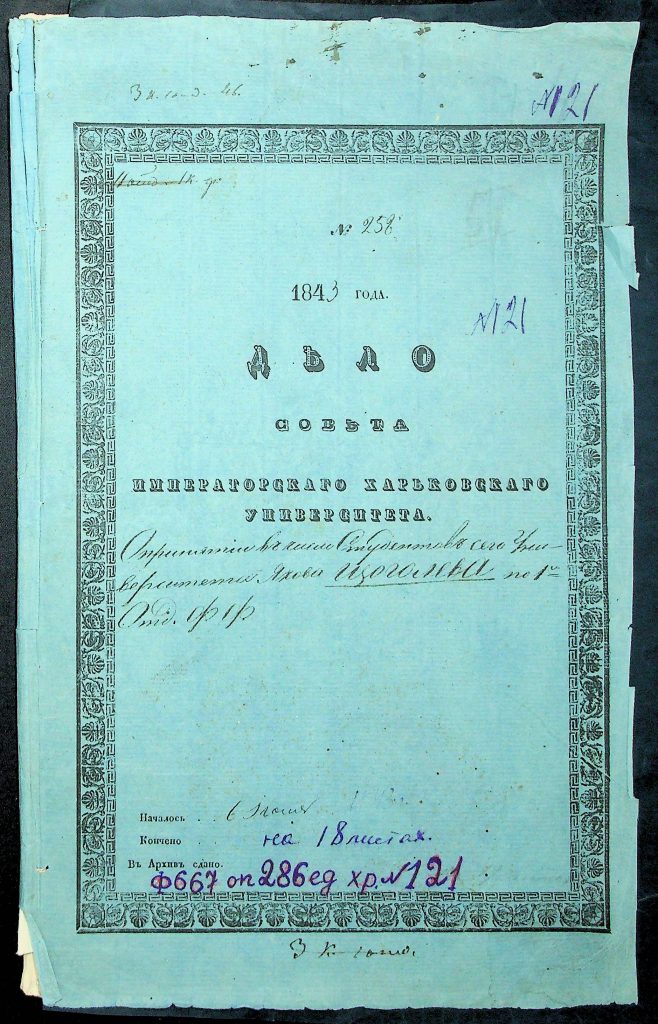 № 121
№ 258
1843 года.
№ 121
ДѢЛО
СОВѢТА
ИМПЕРАТОРСКАГО ХАРЬКОВСКАГО
УНИВЕРСИТЕТА.
О принятіи въ число Студентовъ сего Уни-
верситета Якова Щоголева по 1му
Отд. Ф Ф
Началось . . 6 Іюня
Кончено . . на 18 листах.
Въ Архивъ сдано.
Ф667 оп 286 ед хр. №121